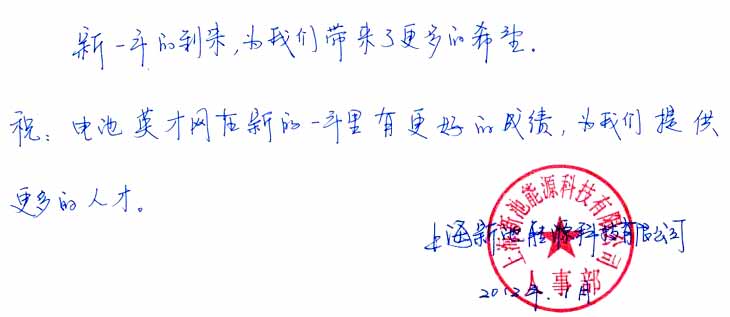 新一年的到来,为我们带来了更多的希望.
祝：电池英才网在新的一年里有更好的成绩,为我们提供
更多的人才。
上海新池能源科技有限公司
上海新池能源科技有限公司
人事部
2012年.1月